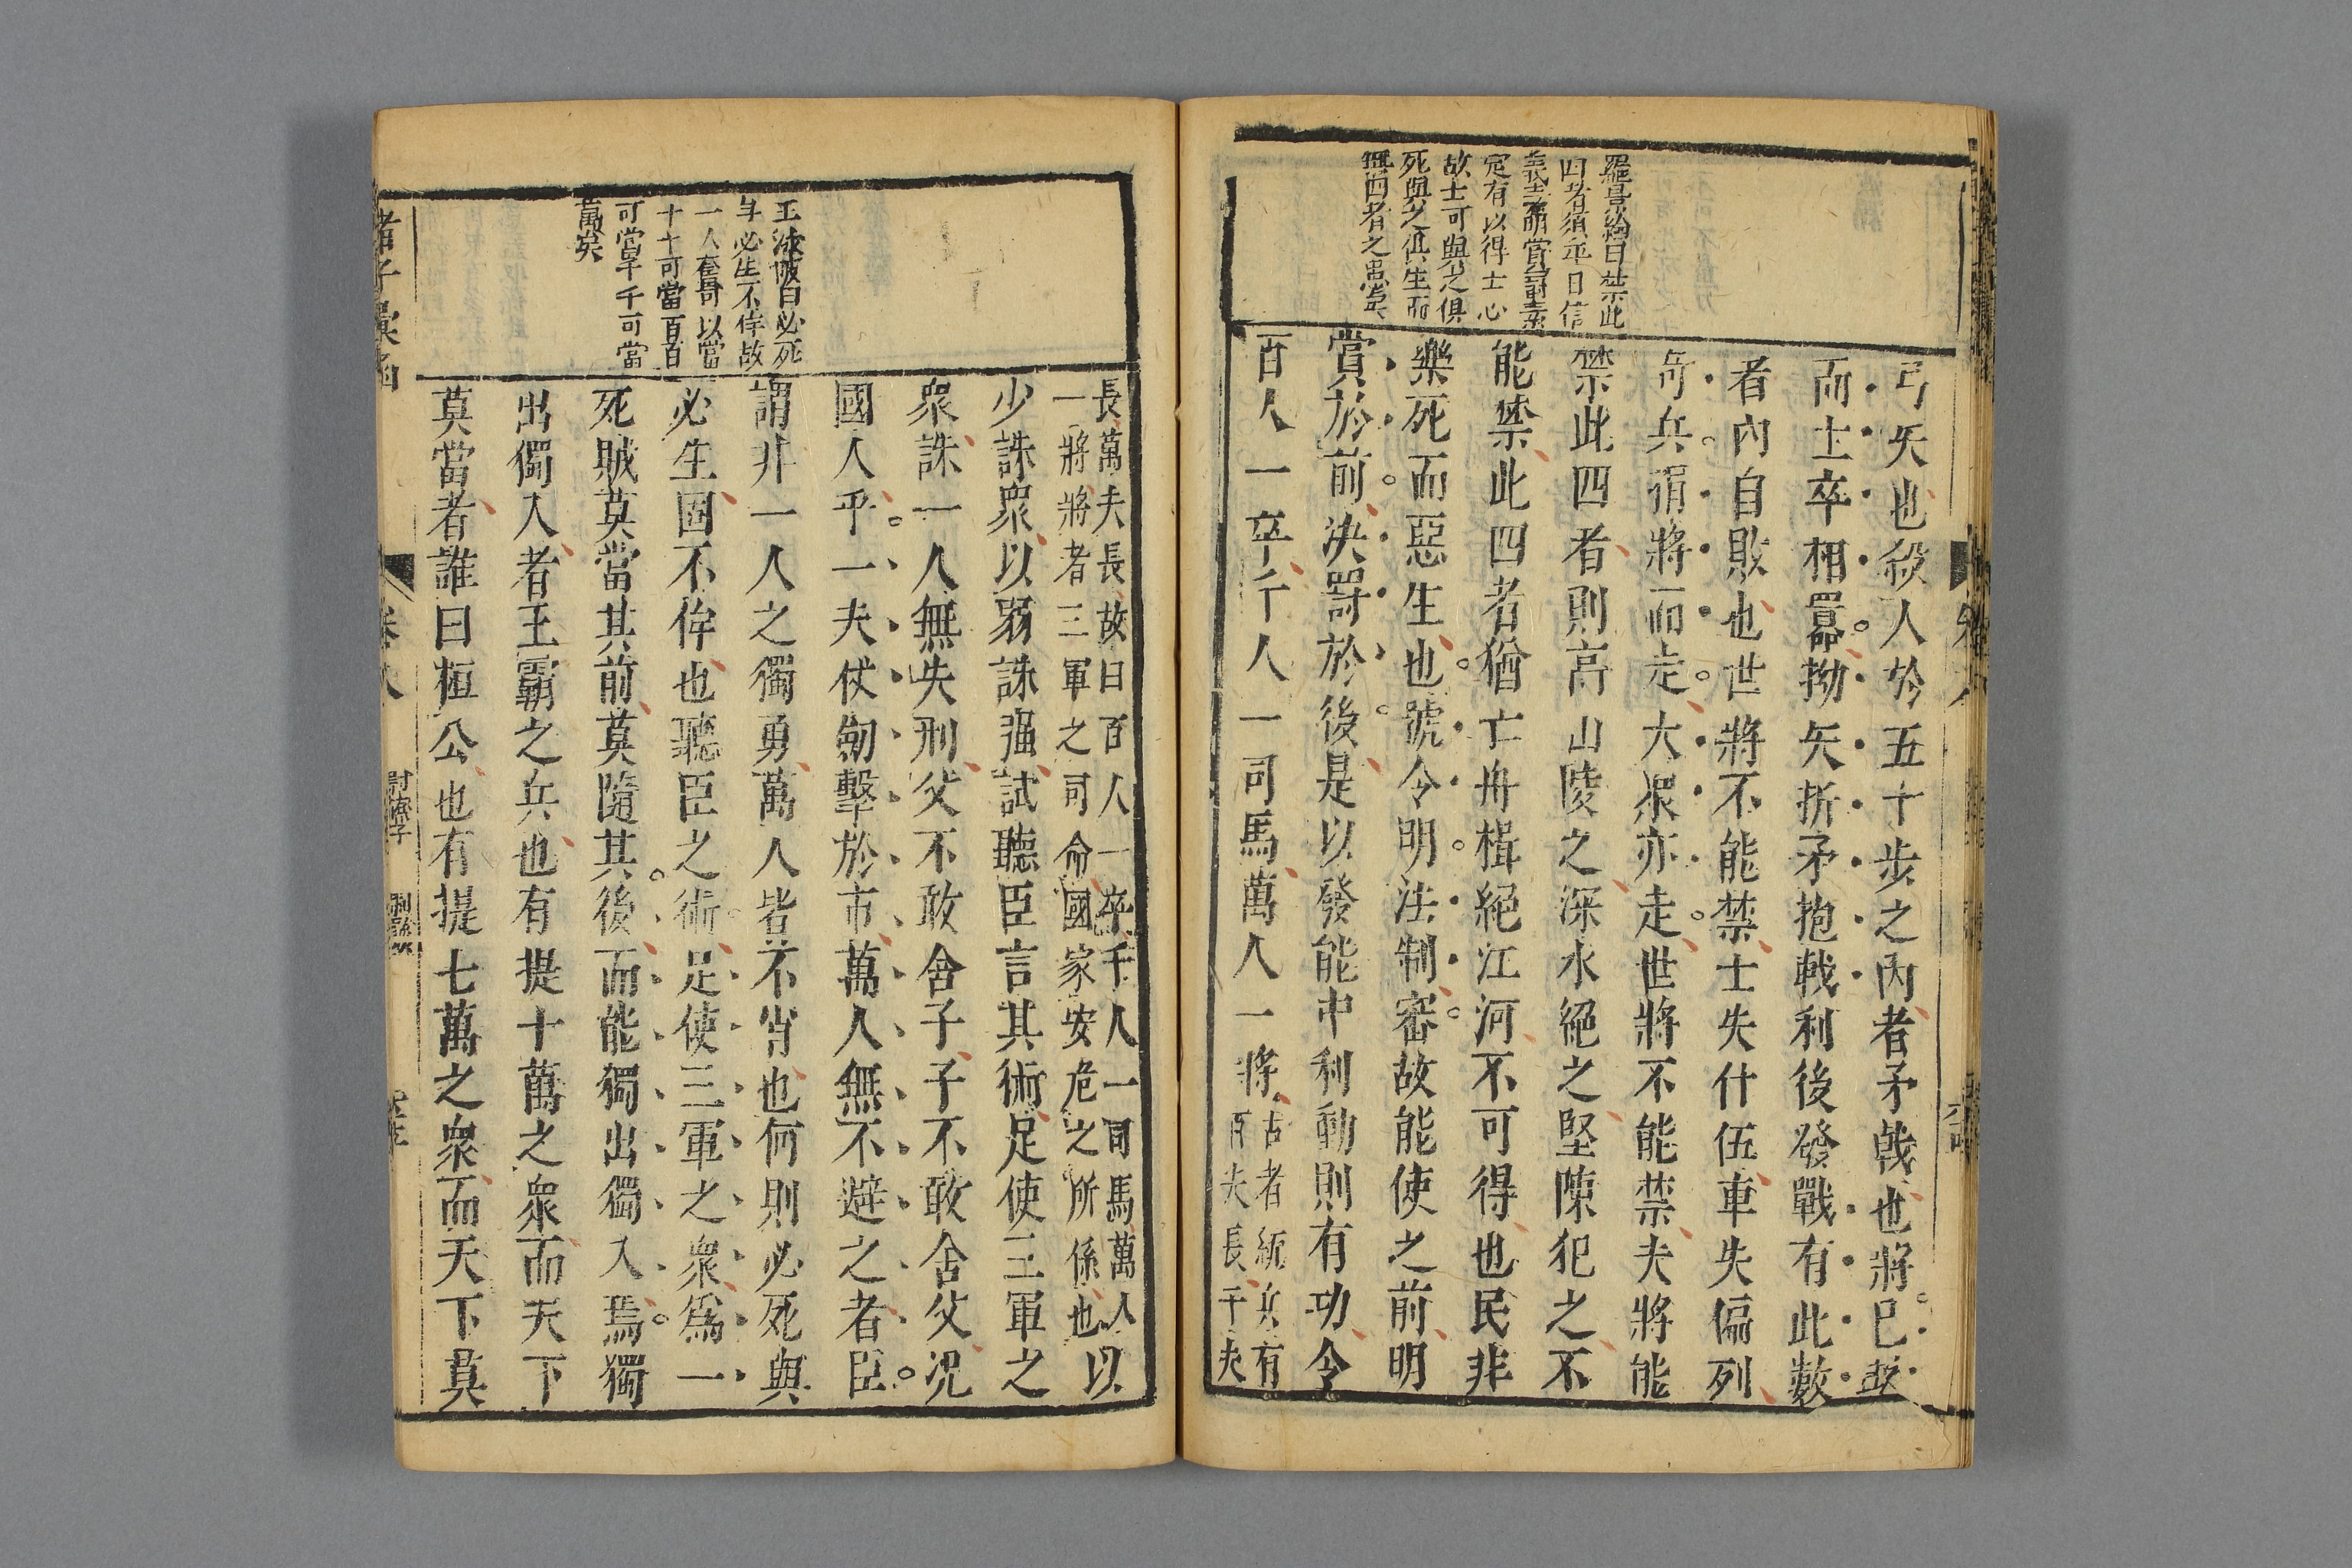 羅景綸曰禁此
四者須平日信
義素明賞罰素
定有以得士心
故士可與之俱
死與之俱生而
無四者之患矣
弓矢也殺人於五十步之內者矛戟也將已鼓
而士卒相囂拗矢折矛抱戟利後發戰有此數
者內自敗也世將不能禁士失什伍車失偏列
奇兵捐將而走大衆亦走世將不能禁夫將能
禁此四者則高山陵之深水絕之堅陳犯之不
能禁此四者猶亡舟楫絕江河不可得也民非
樂死而惡生也號令明法制審故能使之前明
賞於前決罰於後是以發能中利動則有功令
百人一卒千人一司馬萬人一將
古者統兵有
百夫長千夫
王 必死
与必生不侔故
一人奮可以當
十十可當百百
可當千千可當
萬矣
長萬夫長故曰百人一卒千人一司馬萬人
一將將者三軍之司命國家安危之所係也
以
少誅衆以弱誅强試聽臣言其術足使三軍之
衆誅一人無失刑父不敢舍子子不敢舍父况
國人乎一夫仗劒擊於市萬人無不避之者臣
謂非一人之獨勇萬人皆不肖也何則必死與
必生固不侔也聽臣之術足使三軍之衆爲一
死賊莫當其前莫隨其後而能獨出獨入焉獨
出獨入者王霸之兵也有提十萬之衆而天下
莫當者誰曰桓公也有提七萬之衆而天下莫
諸子彙函
卷八
尉繚子
制談